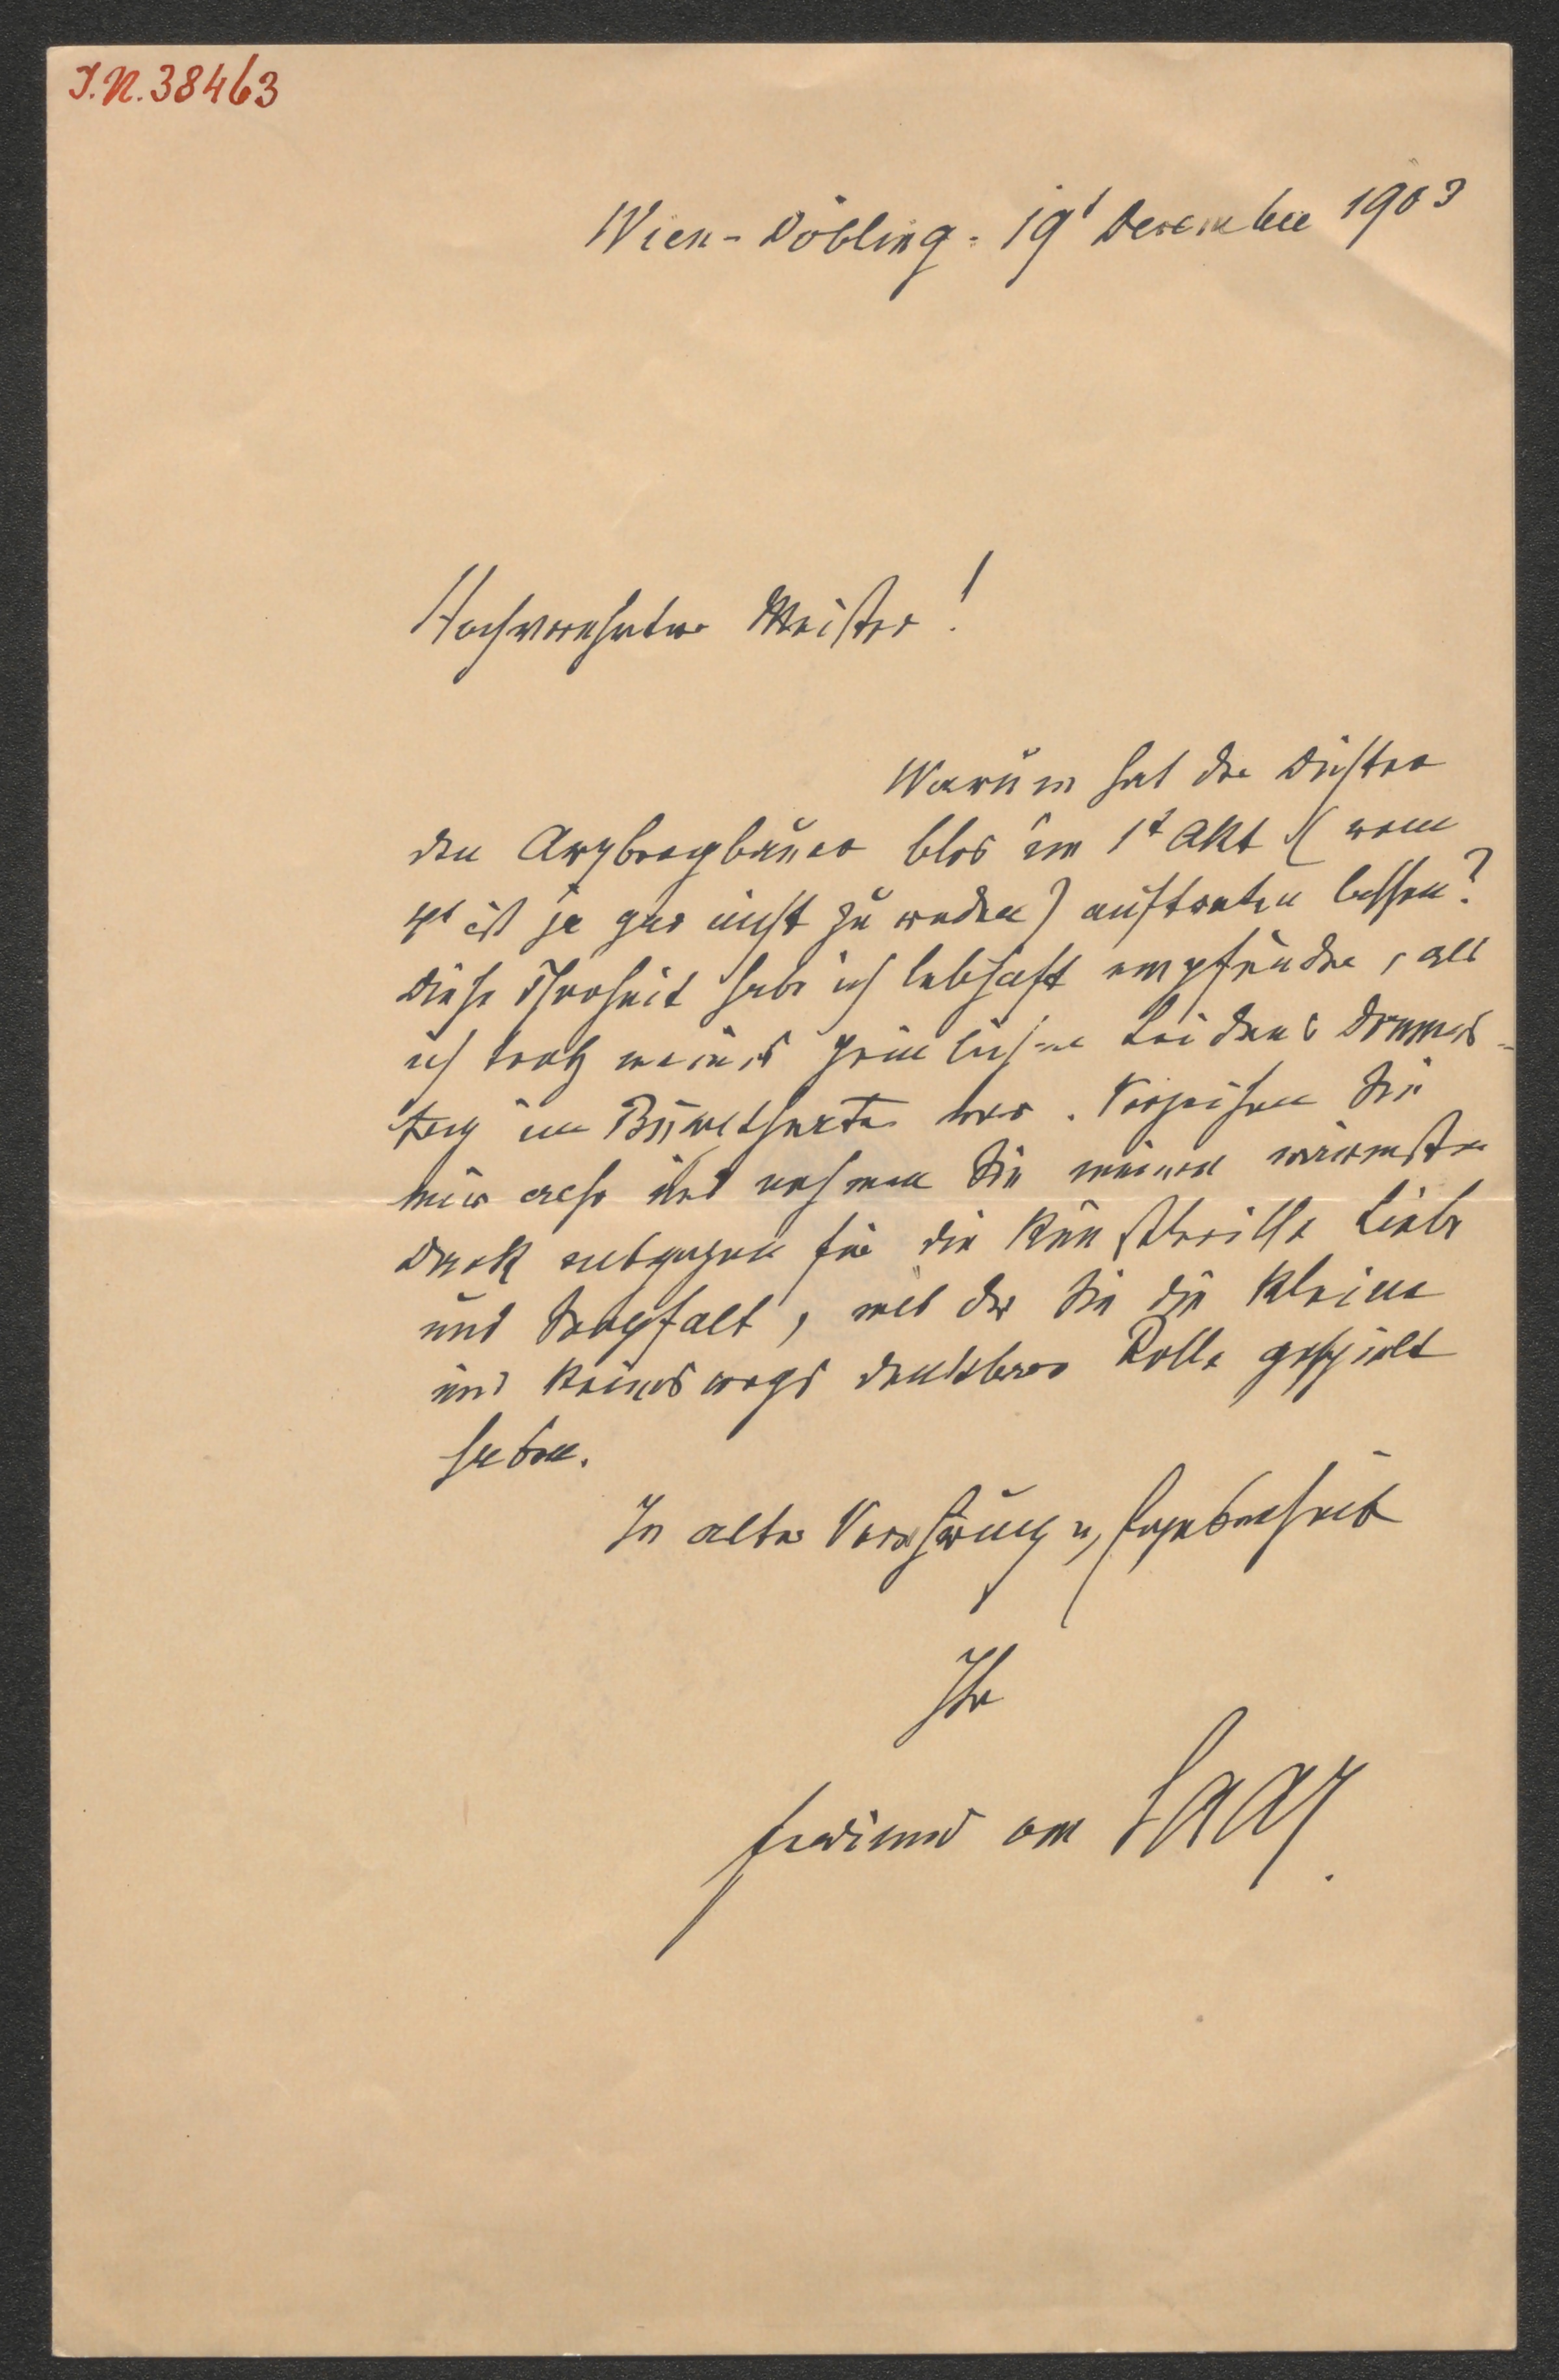 I.N. 38463
Wien-Döbling. 19t Dezember 1903
Hochverehrter Meister!
Warum hat der Dichter
den blos im 1t Akt (vom
4t ist ja gar nicht zu reden) auftreten lassen?
Diese Thorheit habe ich lebhaft empfunden, als
ich trotz meines peinlichen Leidens Donners-
tag im war. Verzeihen Sie
mir also und nehmen Sie meinen wärmsten
Dank entgegen für die kunstvolle Liebe
und Sorgfalt, mit der Sie die kleine
und keineswegs dankbare Rolle gespielt
haben.
In alter Verehrung u. Ergebenheit
Ihr
Ferdinand von Saar.